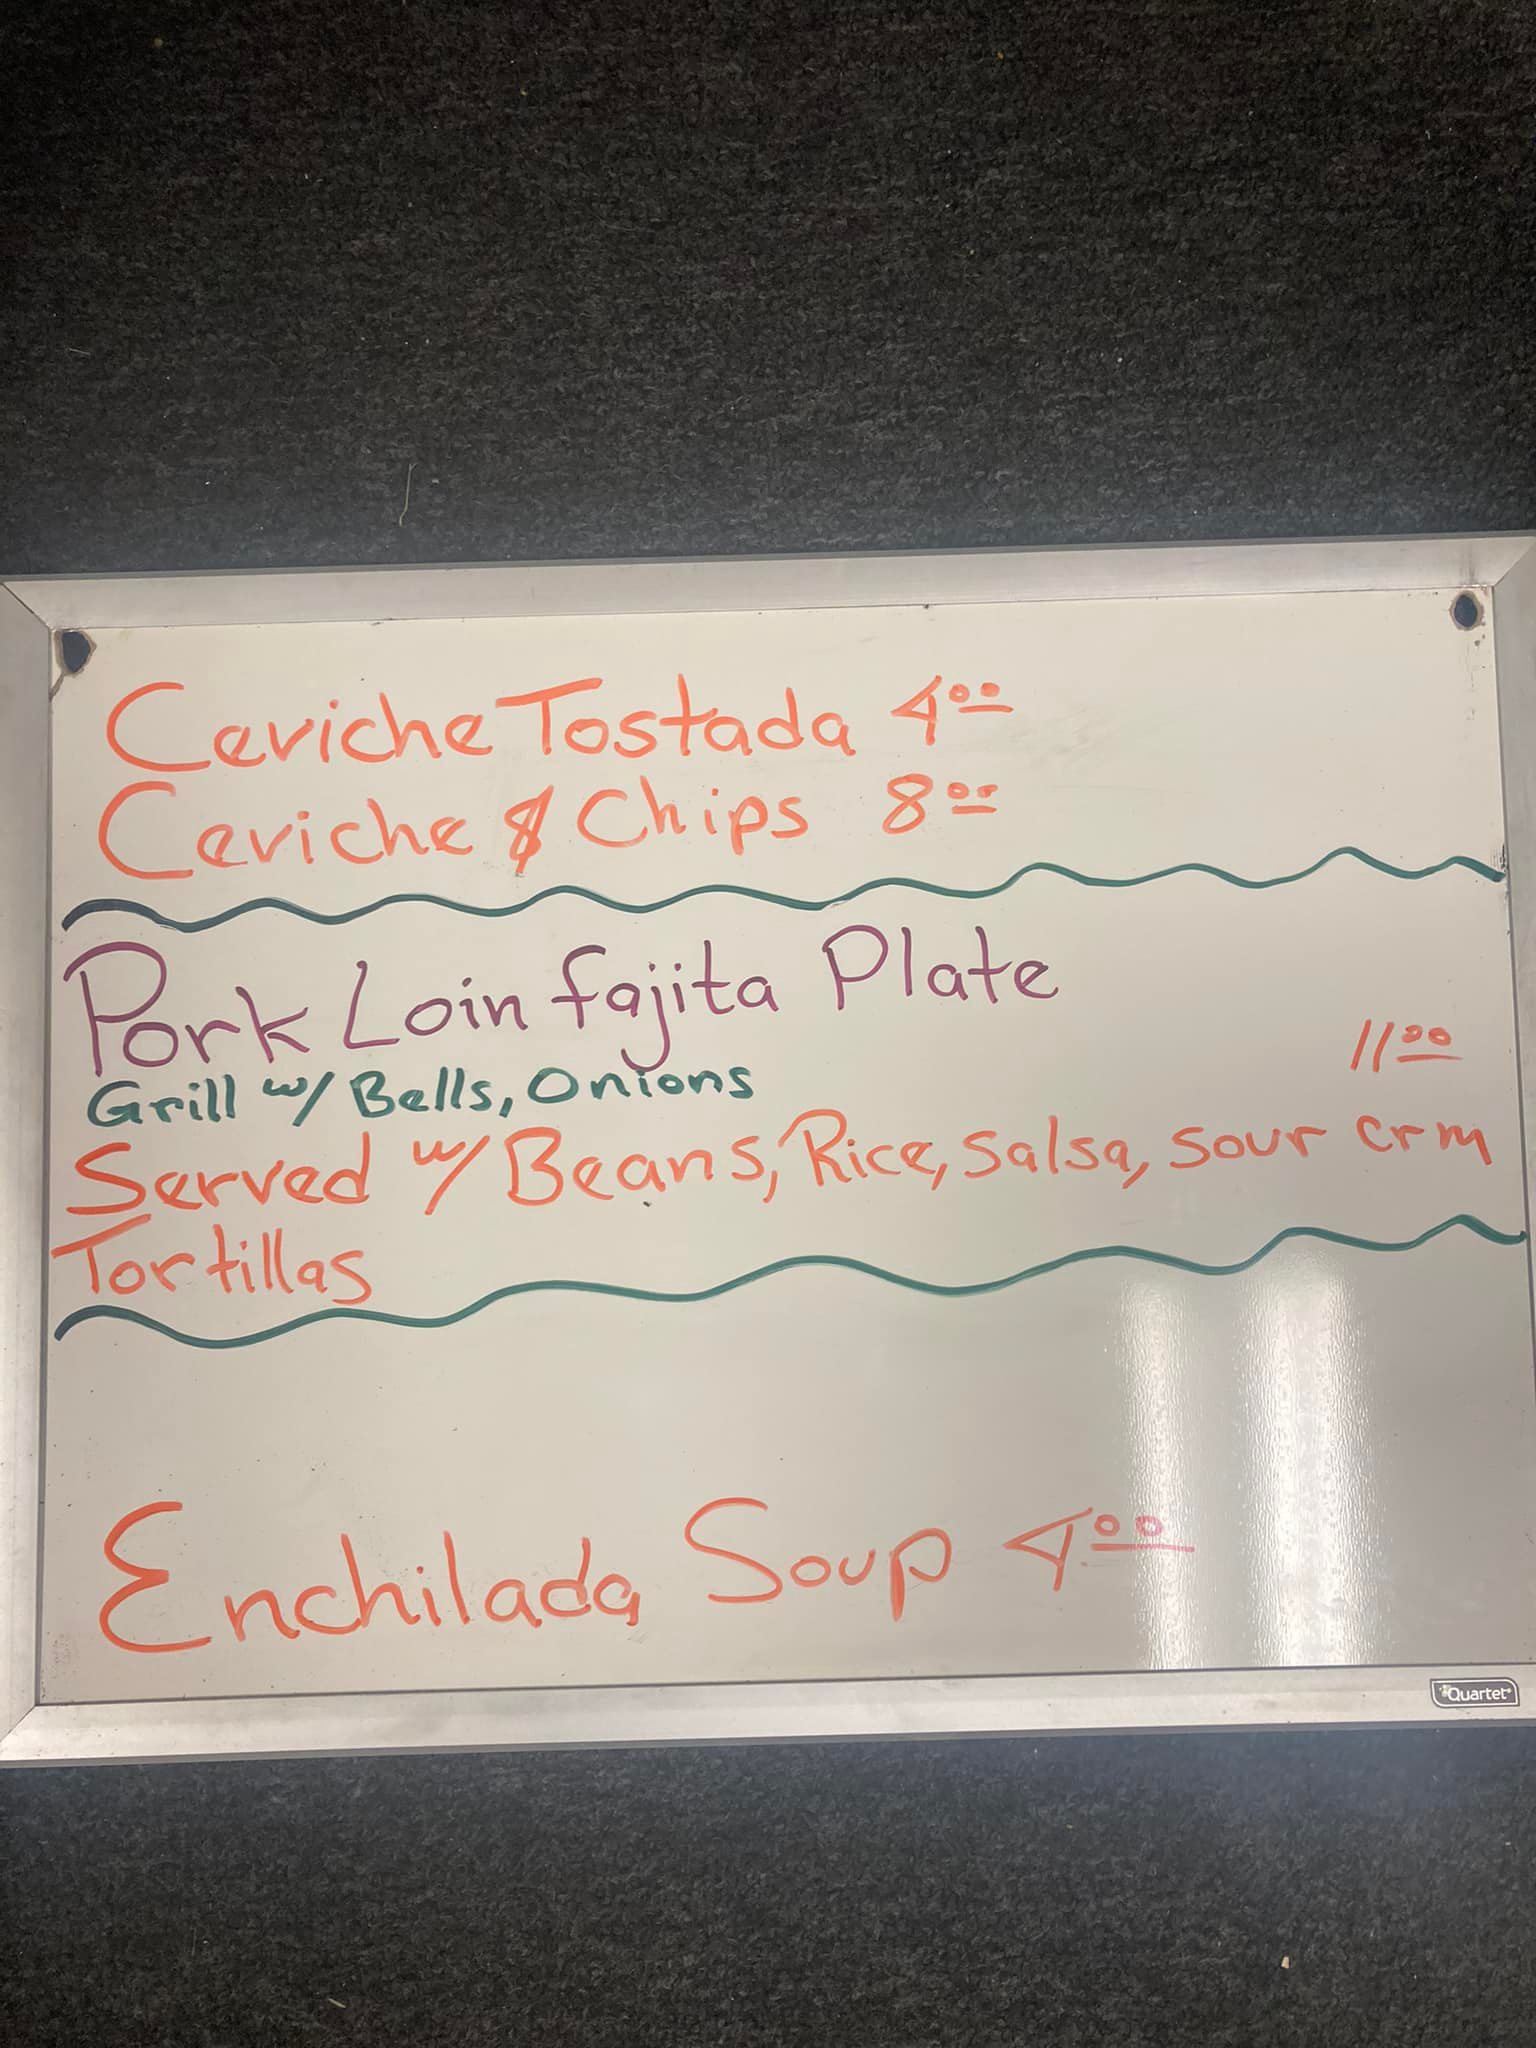 Ceviche Tostada 4⁰⁰
Ceviche & Chips 8⁰⁰
Pork Loin fajita Plate
11⁰⁰
Grill w/ Bells, Onions
Served w/ Beans, Rice, Salsa, Sour crm
Tortillas
Enchilada Soup 4⁰⁰
Quartet